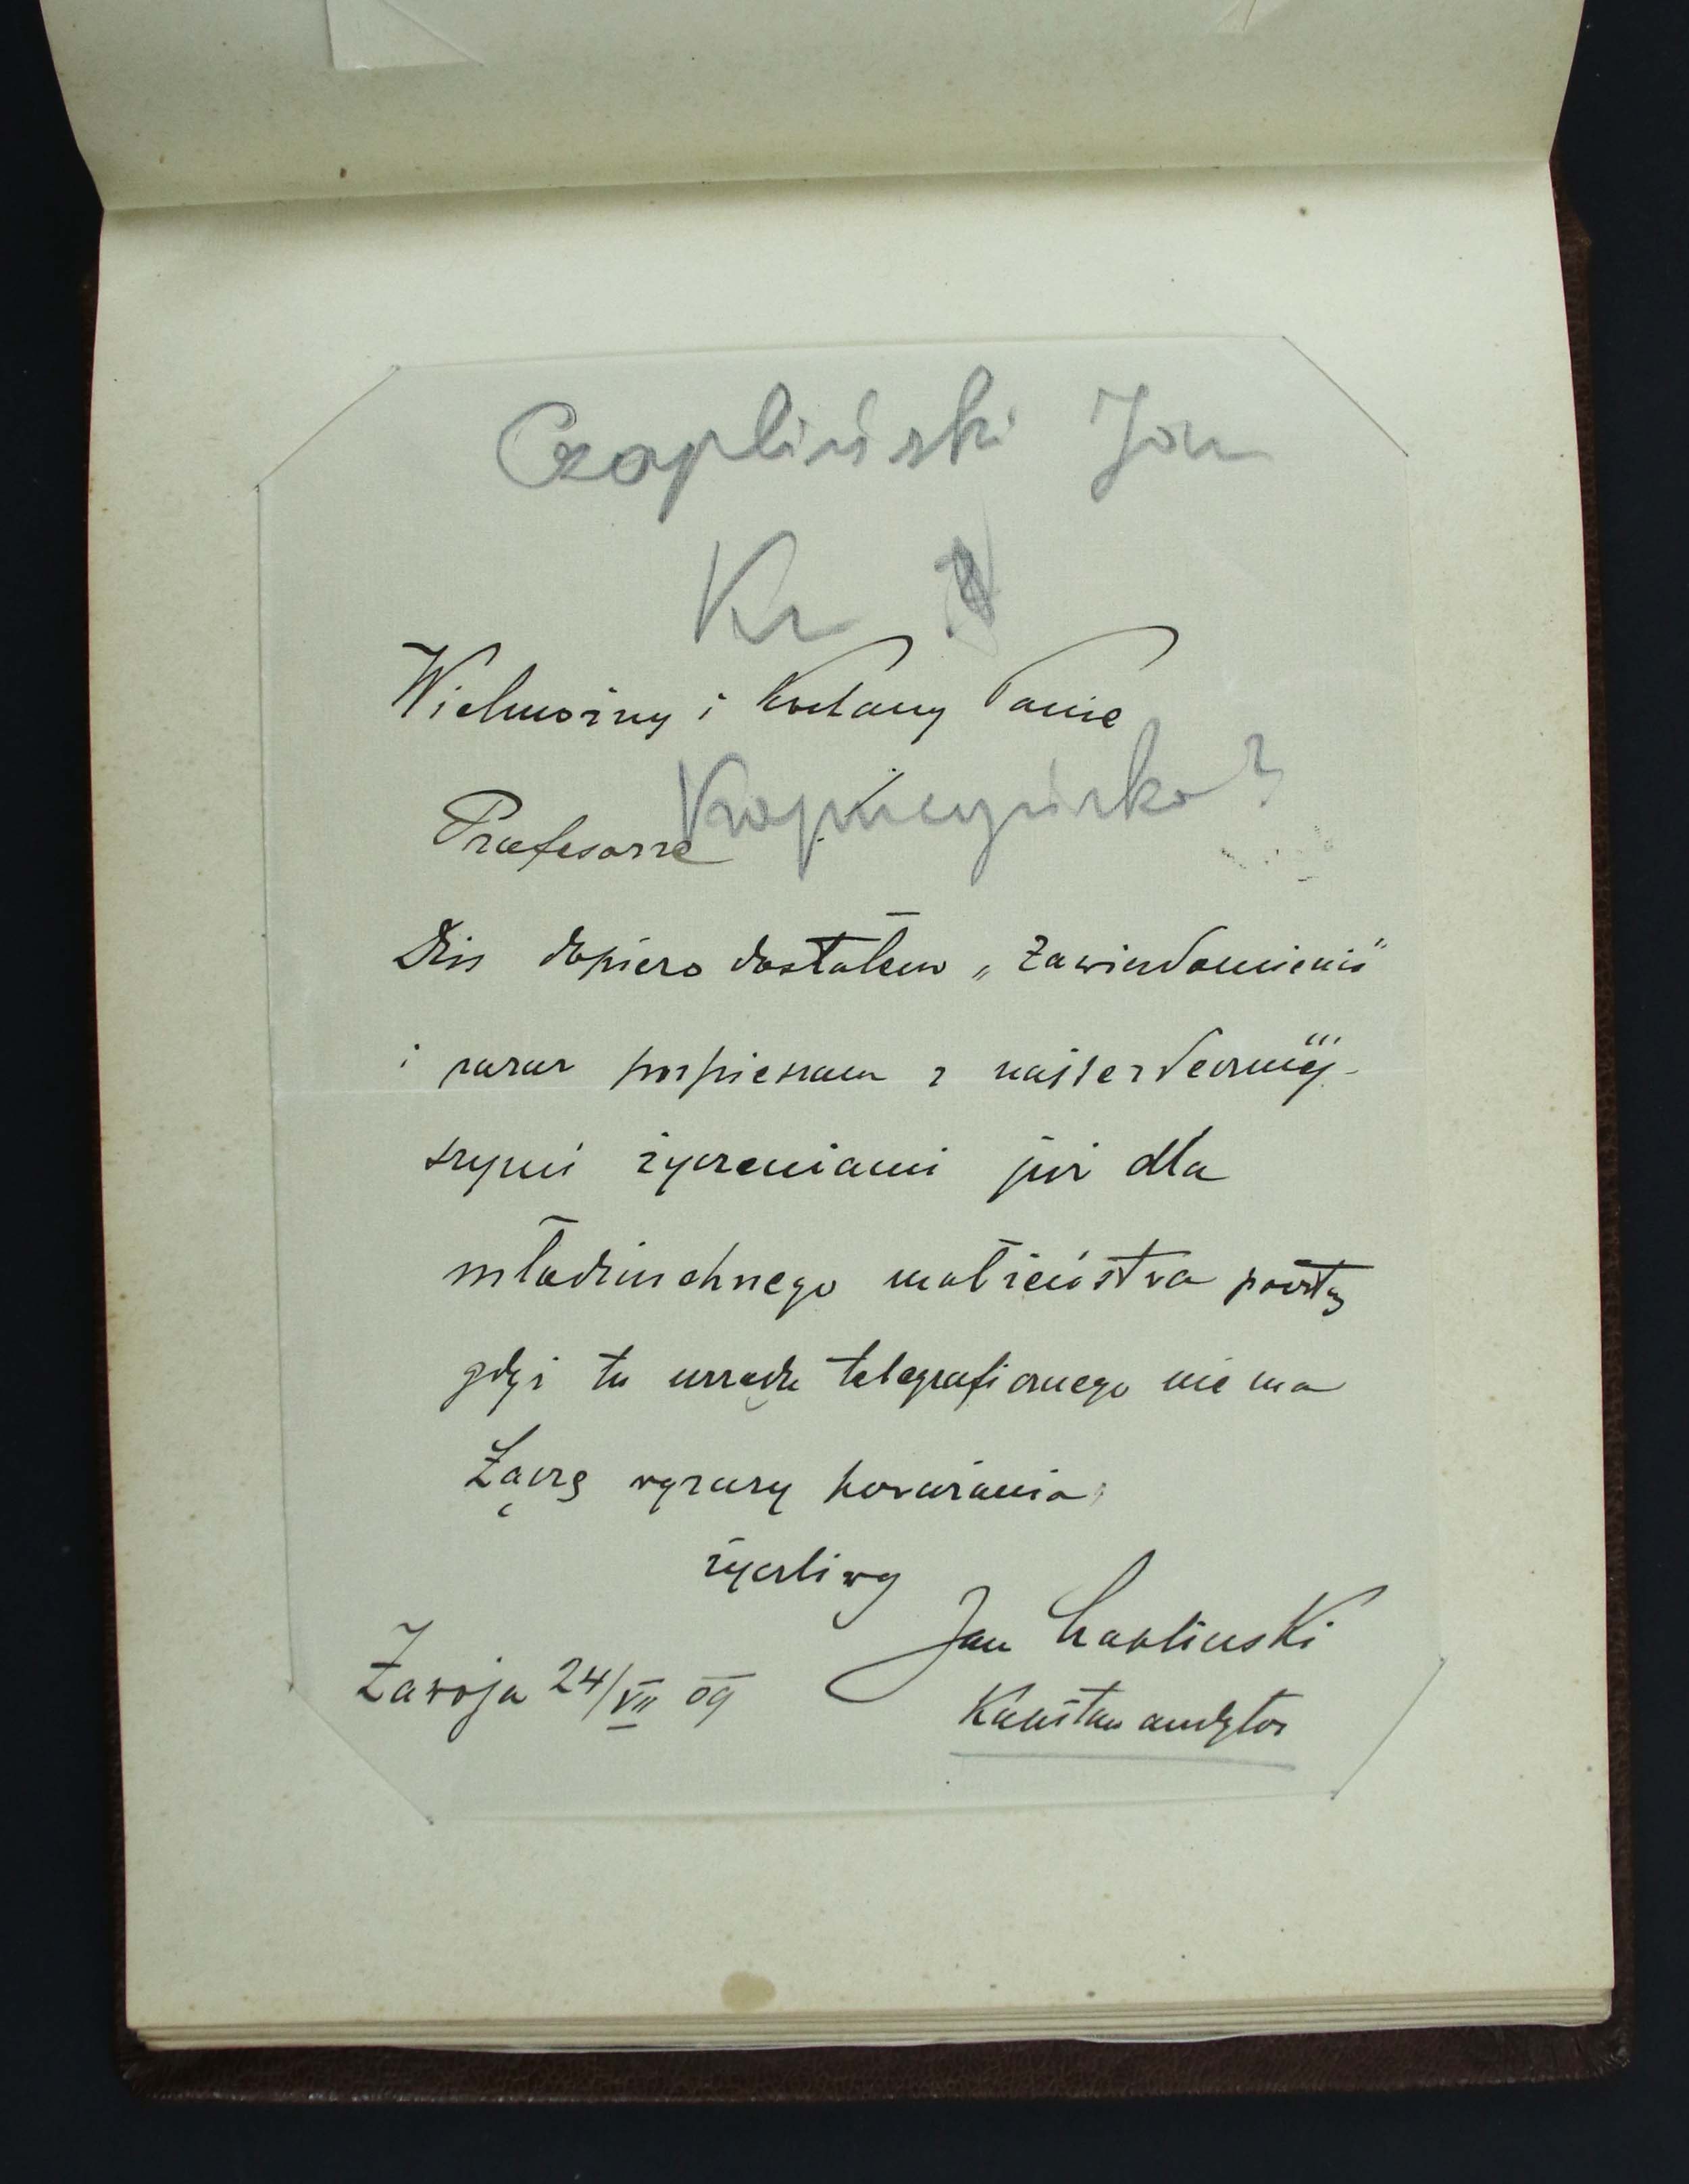 Czapliński Jan
Kr
Wielmożny i Kochany Panie
Kopaczyńska?
Profesorze
Dziś dopiero dostałem „Zawiadomienie"
i zaraz pospieszam z najserdeczniej-
szymi życzeniami już dla
młodziuchnego małżeństwa pocztą
gdyż tu urzędu telegraficznego nie ma
Łączę wyrazy poważania
życzliwy
Jan Czapliński
Zawoja 24/VII 09
Kapitan audytor